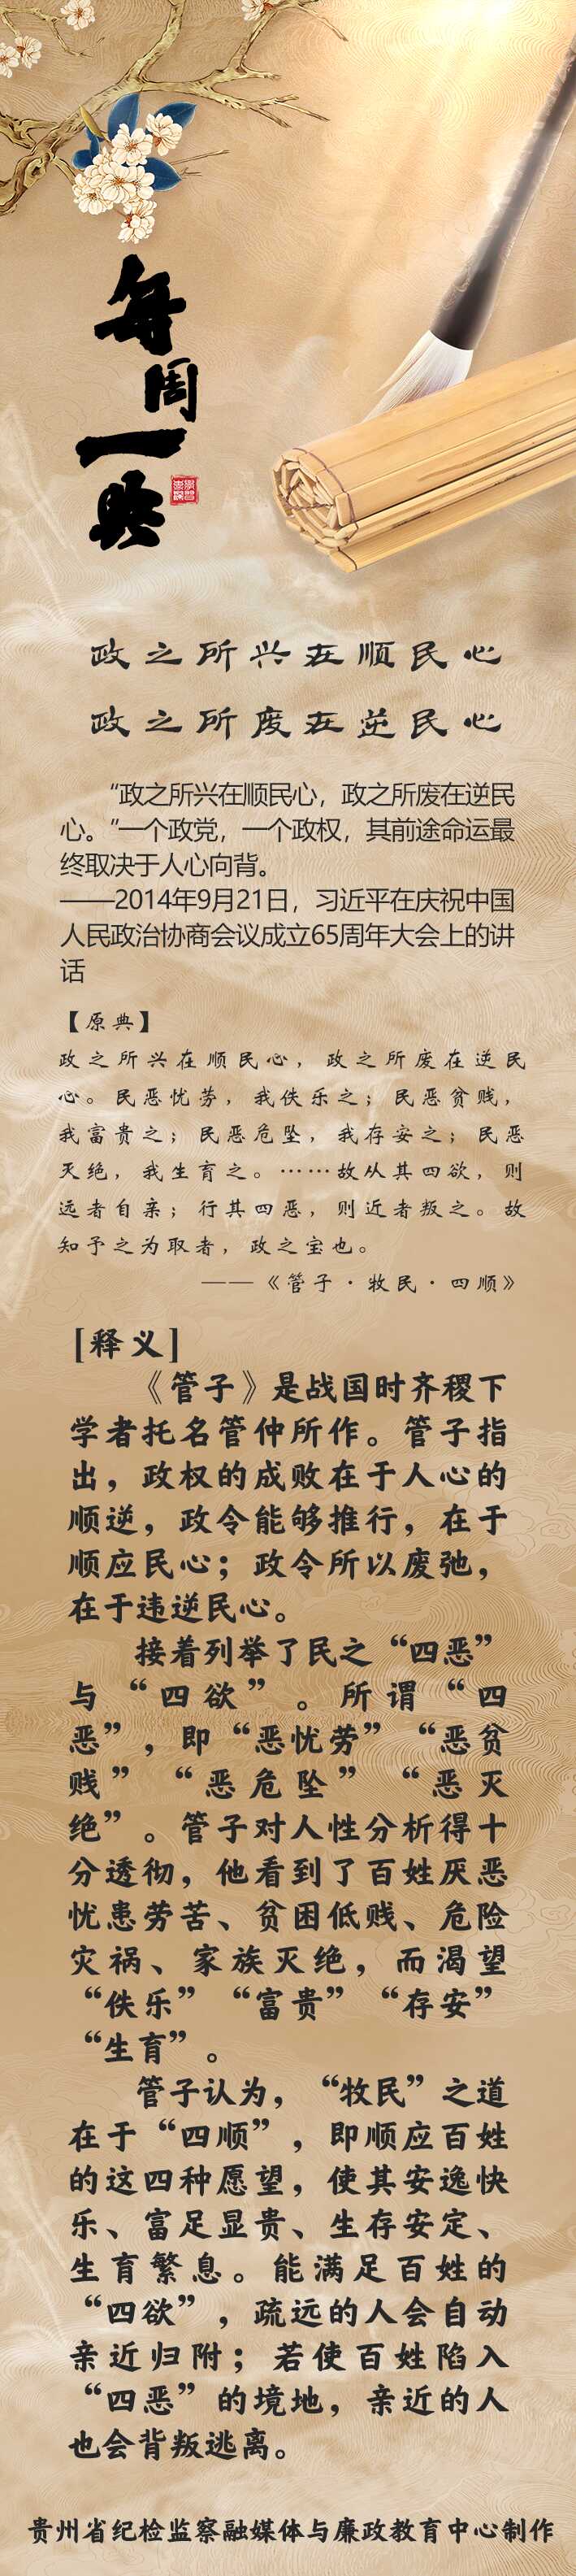 每周一典
政之所兴在顺民心
政之所废在逆民心
“政之所兴在顺民心，政之所废在逆民
心。”一个政党，一个政权，其前途命运最
终取决于人心向背。
——2014年9月21日，习近平在庆祝中国
人民政治协商会议成立65周年大会上的讲
话
【原典】
政之所兴在顺民心，政之所废在逆民
心。民恶忧劳，我佚乐之；民恶贫贱，
我富贵之；民恶危坠，我存安之；民恶
灭绝，我生育之。……故从其四欲，则
远者自亲；行其四恶，则近者叛之。故
知予之为取者，政之宝也。
——《管子·牧民·四顺》
[释义]
《管子》是战国时齐稷下
学者托名管仲所作。管子指
出，政权的成败在于人心的
顺逆，政令能够推行，在于
顺应民心；政令所以废弛，
在于违逆民心。
接着列举了民之“四恶”
与“四欲”。所谓“四
恶”，即“恶忧劳”“恶贫
贱”“恶危坠”“恶灭
绝”。管子对人性分析得十
分透彻，他看到了百姓厌恶
忧患劳苦、贫困低贱、危险
灾祸、家族灭绝，而渴望
“佚乐”“富贵”“存安”
“生育”。
管子认为，“牧民”之道
在于“四顺”，即顺应百姓
的这四种愿望，使其安逸快
乐、富足显贵、生存安定、
生育繁息。能满足百姓的
“四欲”，疏远的人会自动
亲近归附；若使百姓陷入
“四恶”的境地，亲近的人
也会背叛逃离。
贵州省纪检监察融媒体与廉政教育中心制作